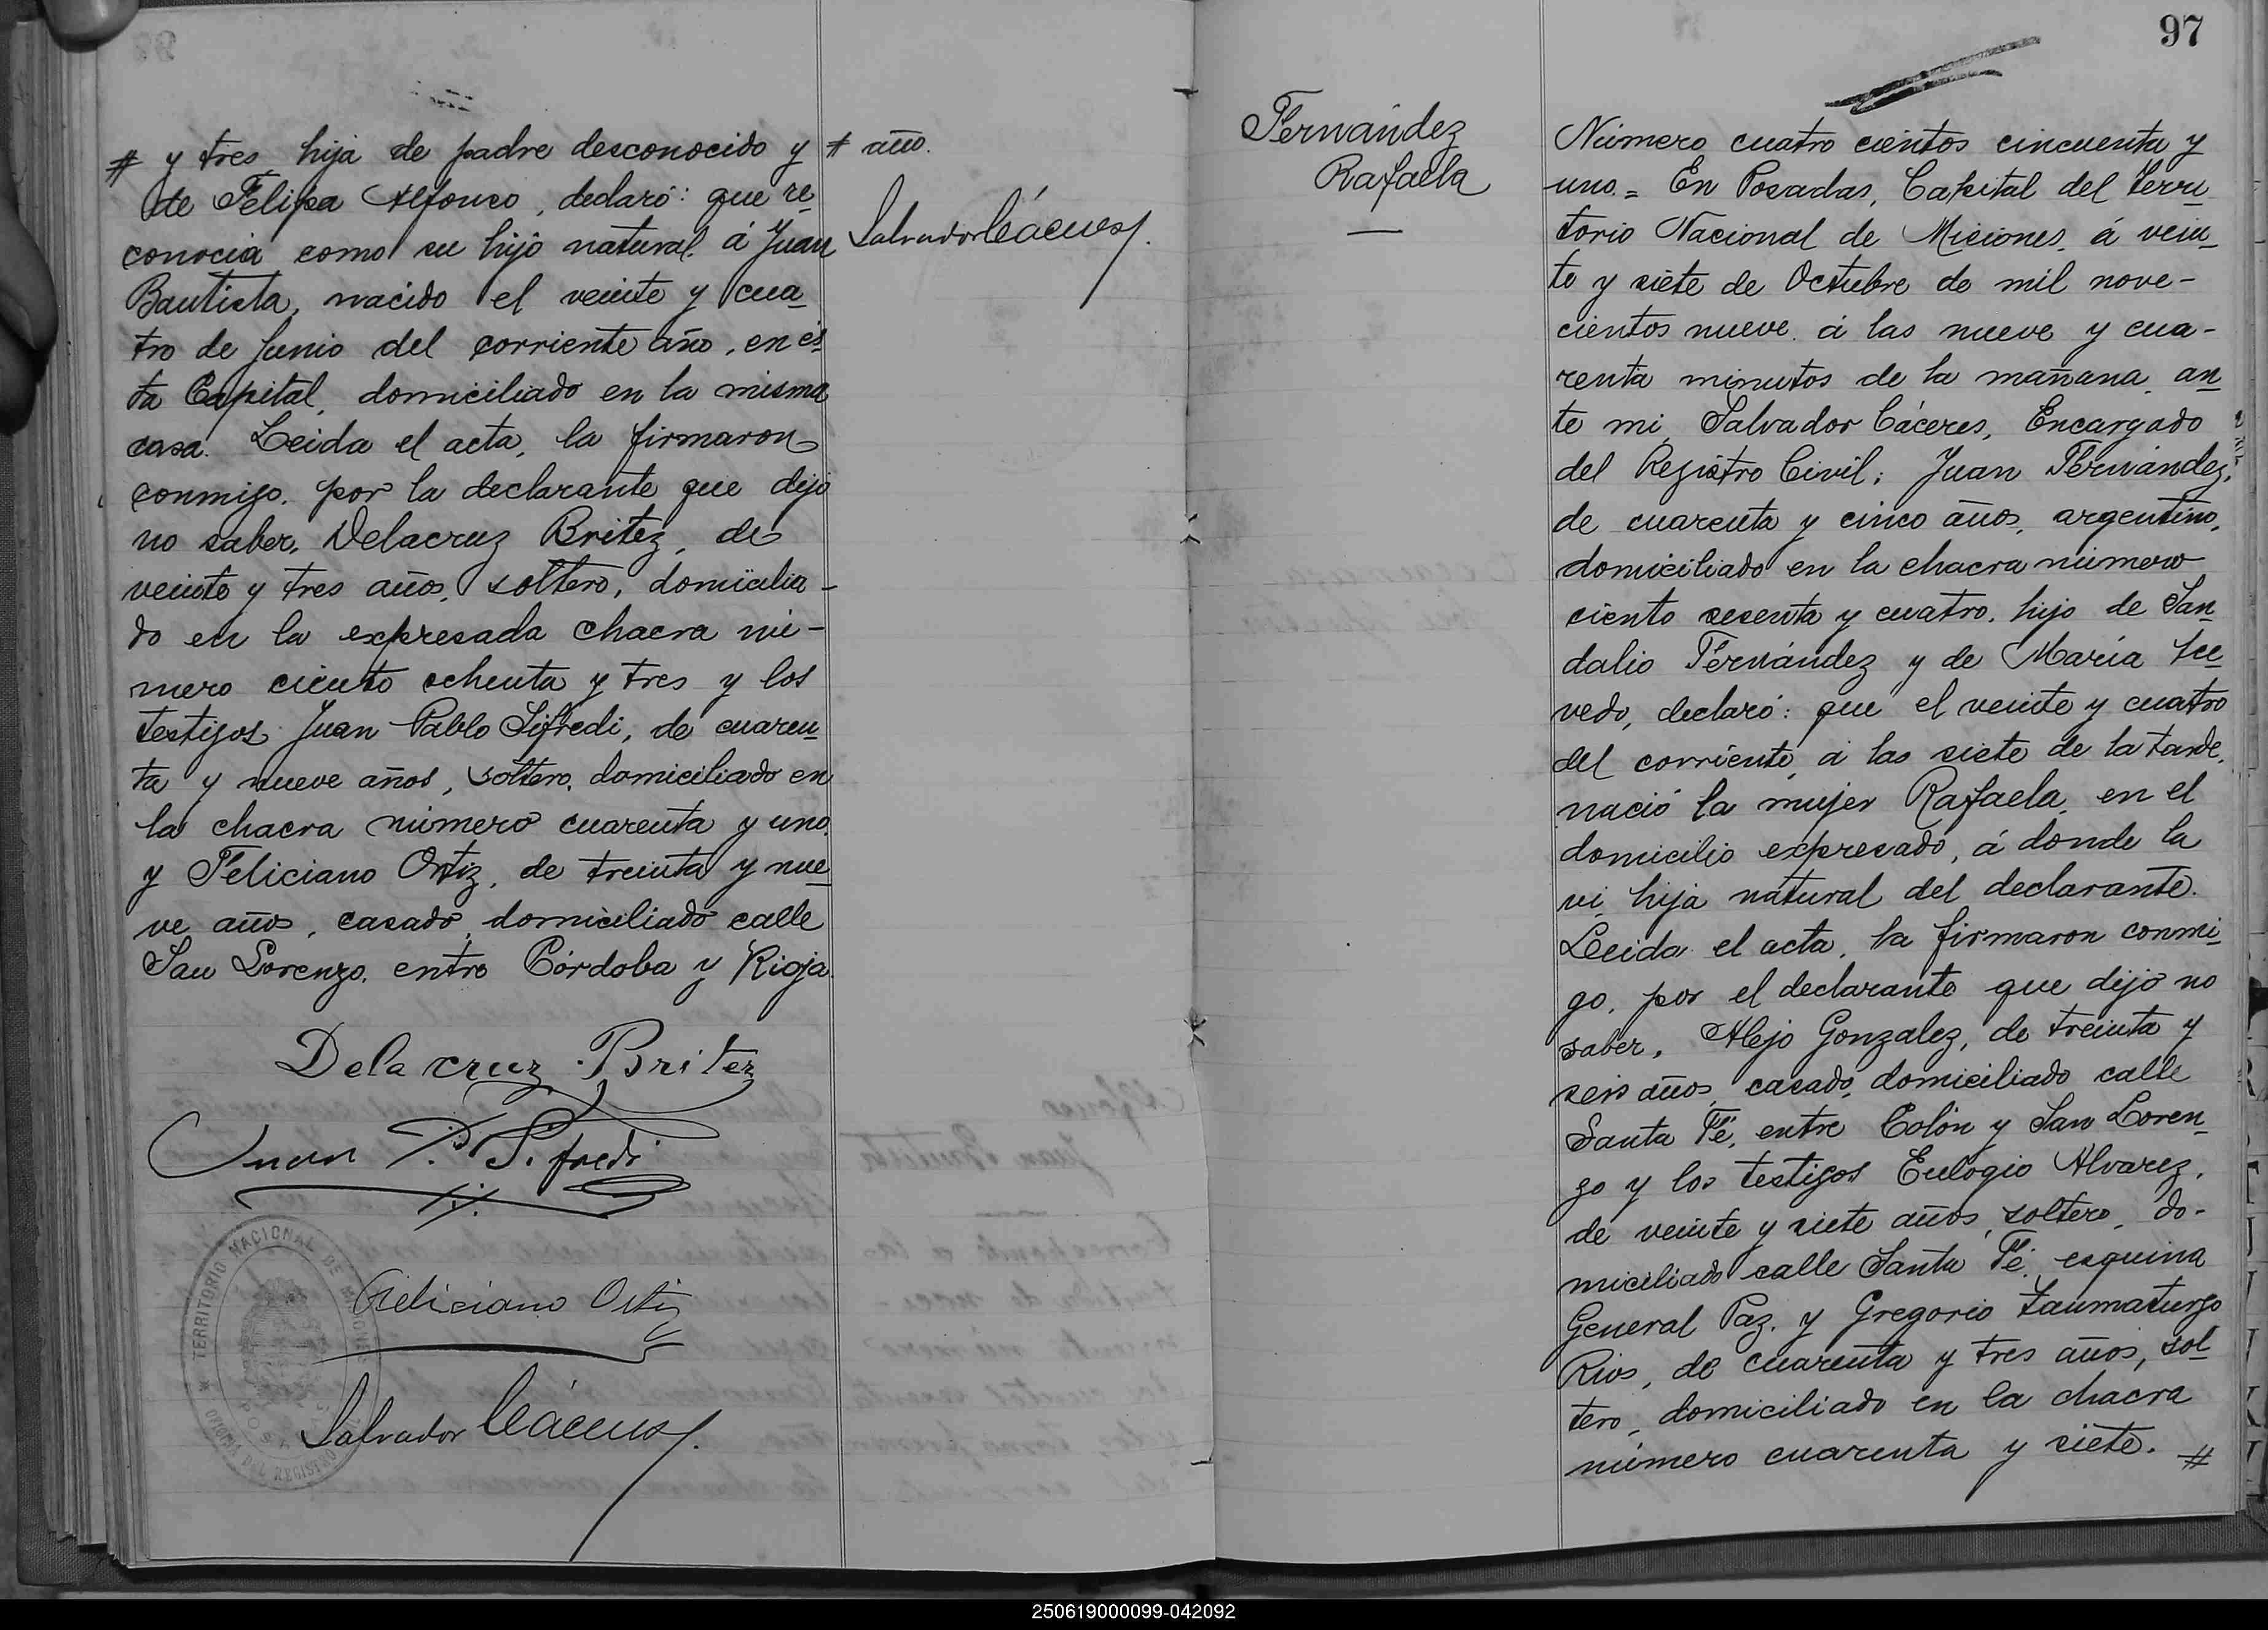 # y tres hija de padre desconocido y
de Felipa Alfonso, declaró: que re
conocia como su hijo natural á Juan
Bautista, nacido el veinte y cua
tro de Junio del corriente año, en és
ta Capital, domiciliado en la misma
casa. Leida el acta, la firmaron
conmigo. por la declarante que dijo
no saber, Delacruz Britez, de
veinte y tres años, soltero, domicilia-
do en la expresada chacra nú-
mero ciento ochenta y tres y los
testigos Juan Pablo Sifredi, de cuaren
ta y nueve años, soltero, domiciliado en
la chacra número cuarenta y uno
y Feliciano Ortiz, de treinta y nue
ve años, casado, domiciliado calle
San Lorenzo, entre Córdoba y Rioja.
Dela cruz Britez
Juan P. Sifredi
Feliciano Ortiz
Salvador Cáceres
TERRITORIO NACIONAL DE MISIONES
OFICINA DEL REGISTRO CIVIL
# año.
Salvador Cáceres
97
Fernández
Rafaela
Número cuatro cientos cincuenta y
uno.= En Posadas, Capital del Terri
torio Nacional de Misiones, á vein
te y siete de Octubre de mil nove-
cientos nueve á las nueve y cua-
renta minutos de la mañana, an
te mi Salvador Cáceres, Encargado
del Registro Civil; Juan Fernández,
de cuarenta y cinco años, argentino,
domiciliado en la chacra número
ciento sesenta y cuatro, hijo de San
dalio Fernández y de María
vedo, declaró: que el veinte y cuatro
del corriente, á las siete de la tarde,
nació la mujer Rafaela, en el
domicilio expresado, á donde la
vi, hija natural del declarante.
Leida el acta, la firmaron conmi
go, por el declarante que dijo no
saber, Alejo Gonzalez, de treinta y
seis años, casado, domiciliado calle
Santa Fé, entre Colón y San Loren
zo y los testigos Eulogio Alvarez,
de veinte y siete años, soltero, do-
miciliado calle Santa Fé, esquina
General Paz, y Gregorio Taumaturgo
Rios, de cuarenta y tres años, sol
tero, domiciliado en la chacra
número cuarenta y siete. #
250619000099-042092